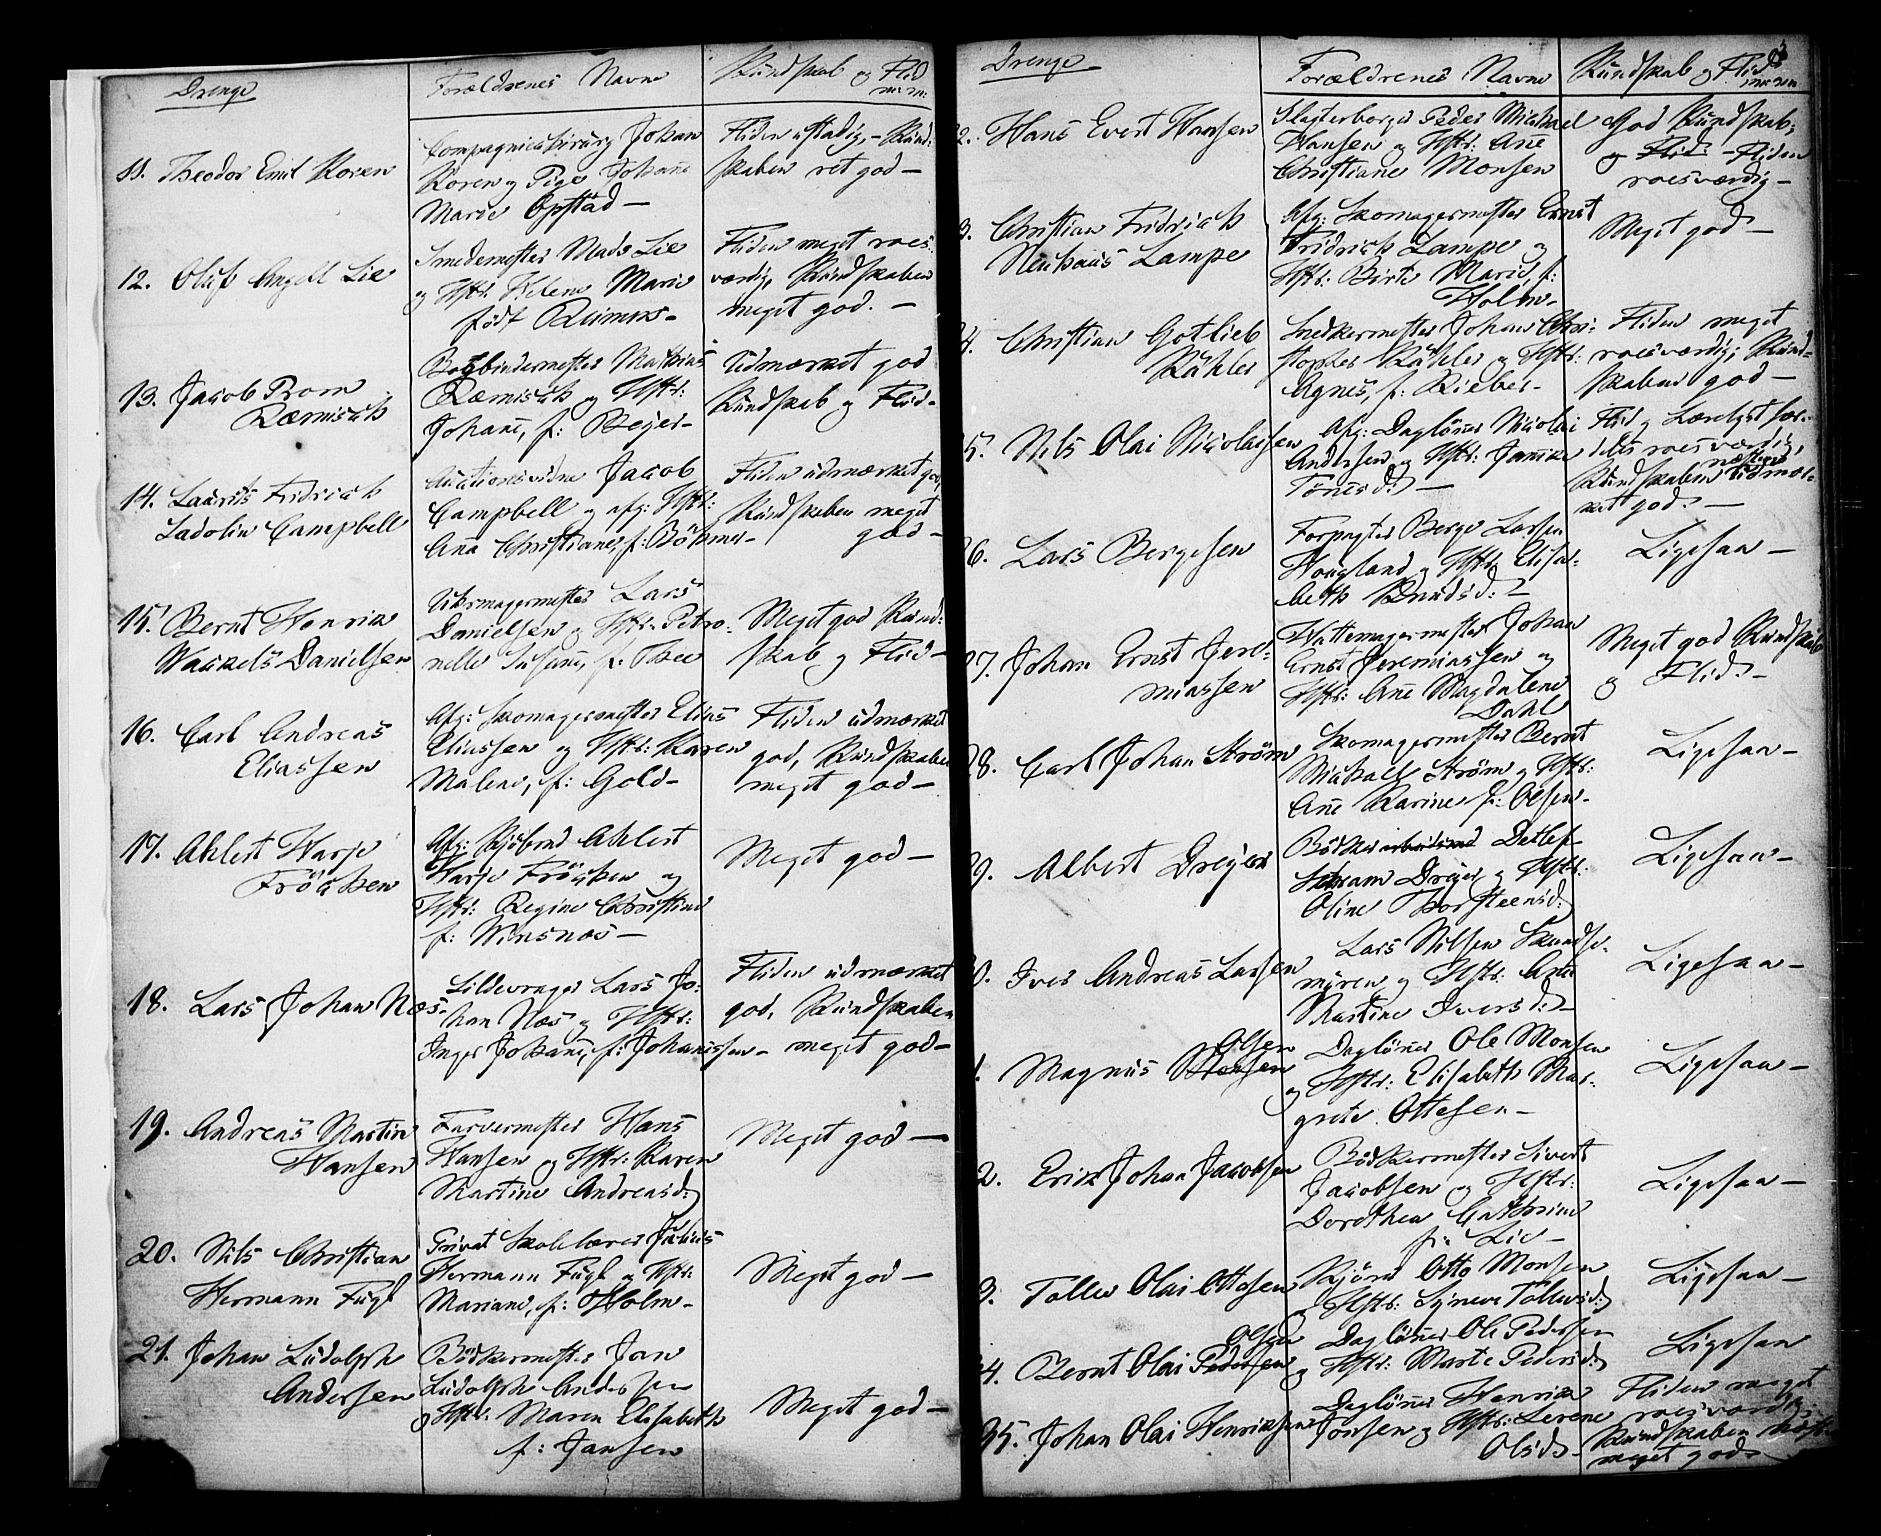 Drenge
Forældrenes Navne
Kundskab og Flid
m: m:
11. Theodor Emil Koren
Compagniechirurg Johan
Koren og Pige Johanne
Marie Opstad —
Fliden stadig, - Kund-
skaben ret god —
12. Oluf Angell Lie
Smedemester Mads Lie
og Hstr. Helene Marie
født Reimers -
Fliden meget roes-
værdig, Kundskaben
meget god. —
13. Jacob Prom
Ræmisch
Bogbindermester Mathias
Ræmisch og Hstr:
Johanne, f: Beyer -
Udmærket god
Kundskab og Flid -
14. Laurits Fridrich
Ladolin Campbell
Auctionsvidne Jacob
Campbell og afg: Hstr:
Anna Christiane, f: Böhmer -
Fliden udmærket god,
Kundskaben meget
god -
15. Bernt Henrik
Danielsen
Uhrmagermester Lars
Danielsen og Hstr: Petro-
nelle Susanne, f:
Meget god Kund-
skab og Flid -
16. Carl Andreas
Eliassen
Afg: Skomagermester Elias
Eliassen og Hstr: Karen
Malene, f: Gold -
Fliden udmærket
god, Kundskaben
meget god -
17. Ahlert Harje
Fröchen
Afg: Kjöbmd Ahlert
Harje Fröchen og
Hstr: Regine Christine
f: Winsnæs —
Meget god —
18. Lars Johan Næs -
Sildevrager Lars Jo-
han Næs og Hstr:
Inger Johanne, f: Johannessen -
Fliden udmærket
god, Kundskaben
meget god -
19. Andreas Martin
Hansen
Farvermester Hans
Hansen og Hstr: Karen
Martine Andreasd:
Meget god —
20. Nils Christian
Hermann Fugl
Privat Skolelærer Julius
Hermann Fugl og Hstr:
Mariane, f: Holm -
Meget god -
21. Johan Ludolph
Andersen
Bödkermester Jan
Ludolph Andersen
og Hstr: Maren Elisabeth
f: Jansen
Meget god -
Drenge
Forældrenes Navne
Kundskab og Flid
m: m:
2. Hans Evert Hansen
Slagterborger Peder Michael
Hansen og Hstr: Anne
Christiane Monsen
God Kundskab,
og Flid - Fliden
roesværdig -
3. Christian Fridrich
Neuhaus Lampe
Afg: Skomagermester Ernst
Fridrich Lampe og
Hstr: Birte Marie f:
Holm -
Meget god -
4. Christian Gotlieb
Kähler
Snedkermester Johan Chri-
stopher Kähler og Hstr:
Agnes, f: Rieber -
Fliden meget
roesværdig, Kund-
skaben god -
25. Nils Olai Nicolaisen
Afg: Daglönner Nicolai
Anderssen og Hstr: Jannike
Tönnesd: —
Flid og Lærelyst sær-
deles roesværdig,
Kundskaben næsten udmær-
ket god. —
26. Lars Bergesen
Forpagter Berge Larsen
Hougland og Hstr: Elisa-
beth Knudsd: -
Ligesaa -
27. Johan Ernst Jere-
miassen
Hattemagermester Johan
Ernst Jeremiassen og
Hstr: Anne Magdalene
Dahl
Meget god Kundskab
og Flid -
28. Carl Johan Ström
Skomagermester Bernt
Michall Ström og Hstr:
Anne Karine f: Olsen -
Ligesaa -
29. Albert Dreyer
Bödker Detlef
Schram Dreyer og Hstr:
Oline Thorsteensd:
Ligesaa -
30. Iver Andreas Larsen
Lars Nilsen Skundse-
myren og Hstr: Anne
Martine Iversd: -
Ligesaa -
1. Magnus Monsen
Olsen
Daglönner Ole Monsen
og Hstr: Elisabeth Mar-
grete Ottesen -
Ligesaa -
2. Erik Johan Jacobsen
Bödkermester Sivert
Jacobsen og Hstr:
Dorothea Cathrine
f: Lie -
Ligesaa -
3. Tollew Olai Ottosen
Otto Monsen
og Hstr: Synneve Tollewsd:
Ligesaa -
34. Bernt Olai Pedersen
Olsen
Daglönner Ole Pedersen
og Hstr: Marte Pedersd:
Ligesaa
35. Johan Olai Henriksen
Daglönner Henrik
Jonsen og Hstr: Serene
Olsd: -
Fliden meget
roesværdig,
Kundskaben
meget god